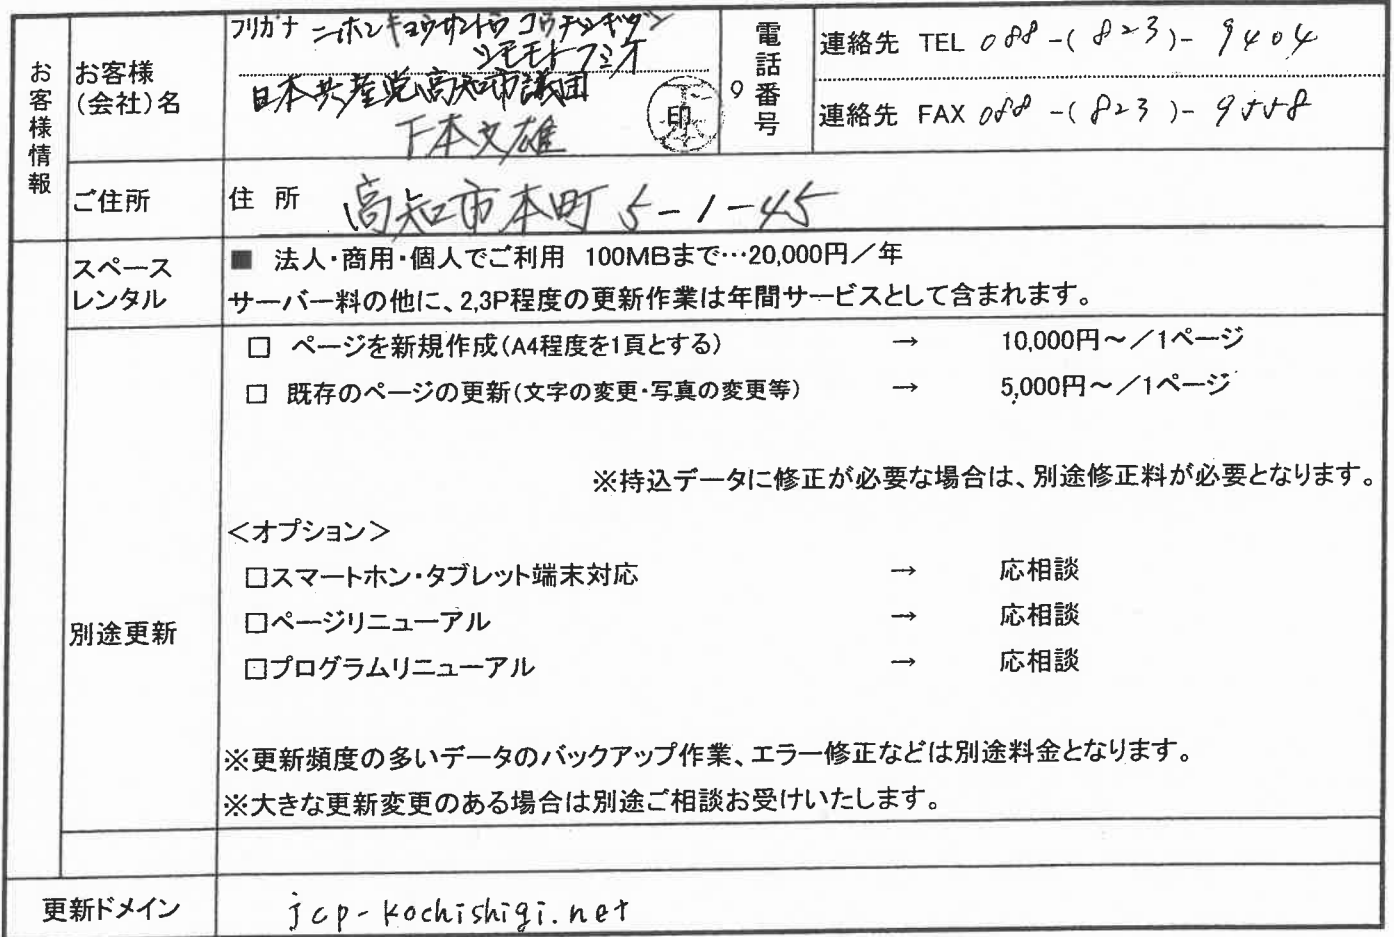 お客様情報
お客様
(会社)名
フリガナ ニホンキョウサントウ コウチシギダン
シモモトフミオ
日本共産党高知市議団
下本文雄
印
電話番号
連絡先 TEL 088-(823)-9404
連絡先 FAX 088-(823)-9558
ご住所
住 所 高知市本町5-1-45
スペース
レンタル
■ 法人・商用・個人でご利用 100MBまで…20,000円/年
サーバー料の他に、2,3P程度の更新作業は年間サービスとして含まれます。
別途更新
□ ページを新規作成(A4程度を1頁とする) → 10,000円~/1ページ
□ 既存のページの更新(文字の変更・写真の変更等) → 5,000円~/1ページ
※持込データに修正が必要な場合は、別途修正料が必要となります。
<オプション>
□スマートホン・タブレット端末対応 → 応相談
□ページリニューアル → 応相談
□プログラムリニューアル → 応相談
※更新頻度の多いデータのバックアップ作業、エラー修正などは別途料金となります。
※大きな更新変更のある場合は別途ご相談お受けいたします。
更新ドメイン
jcp-kochishigi.net